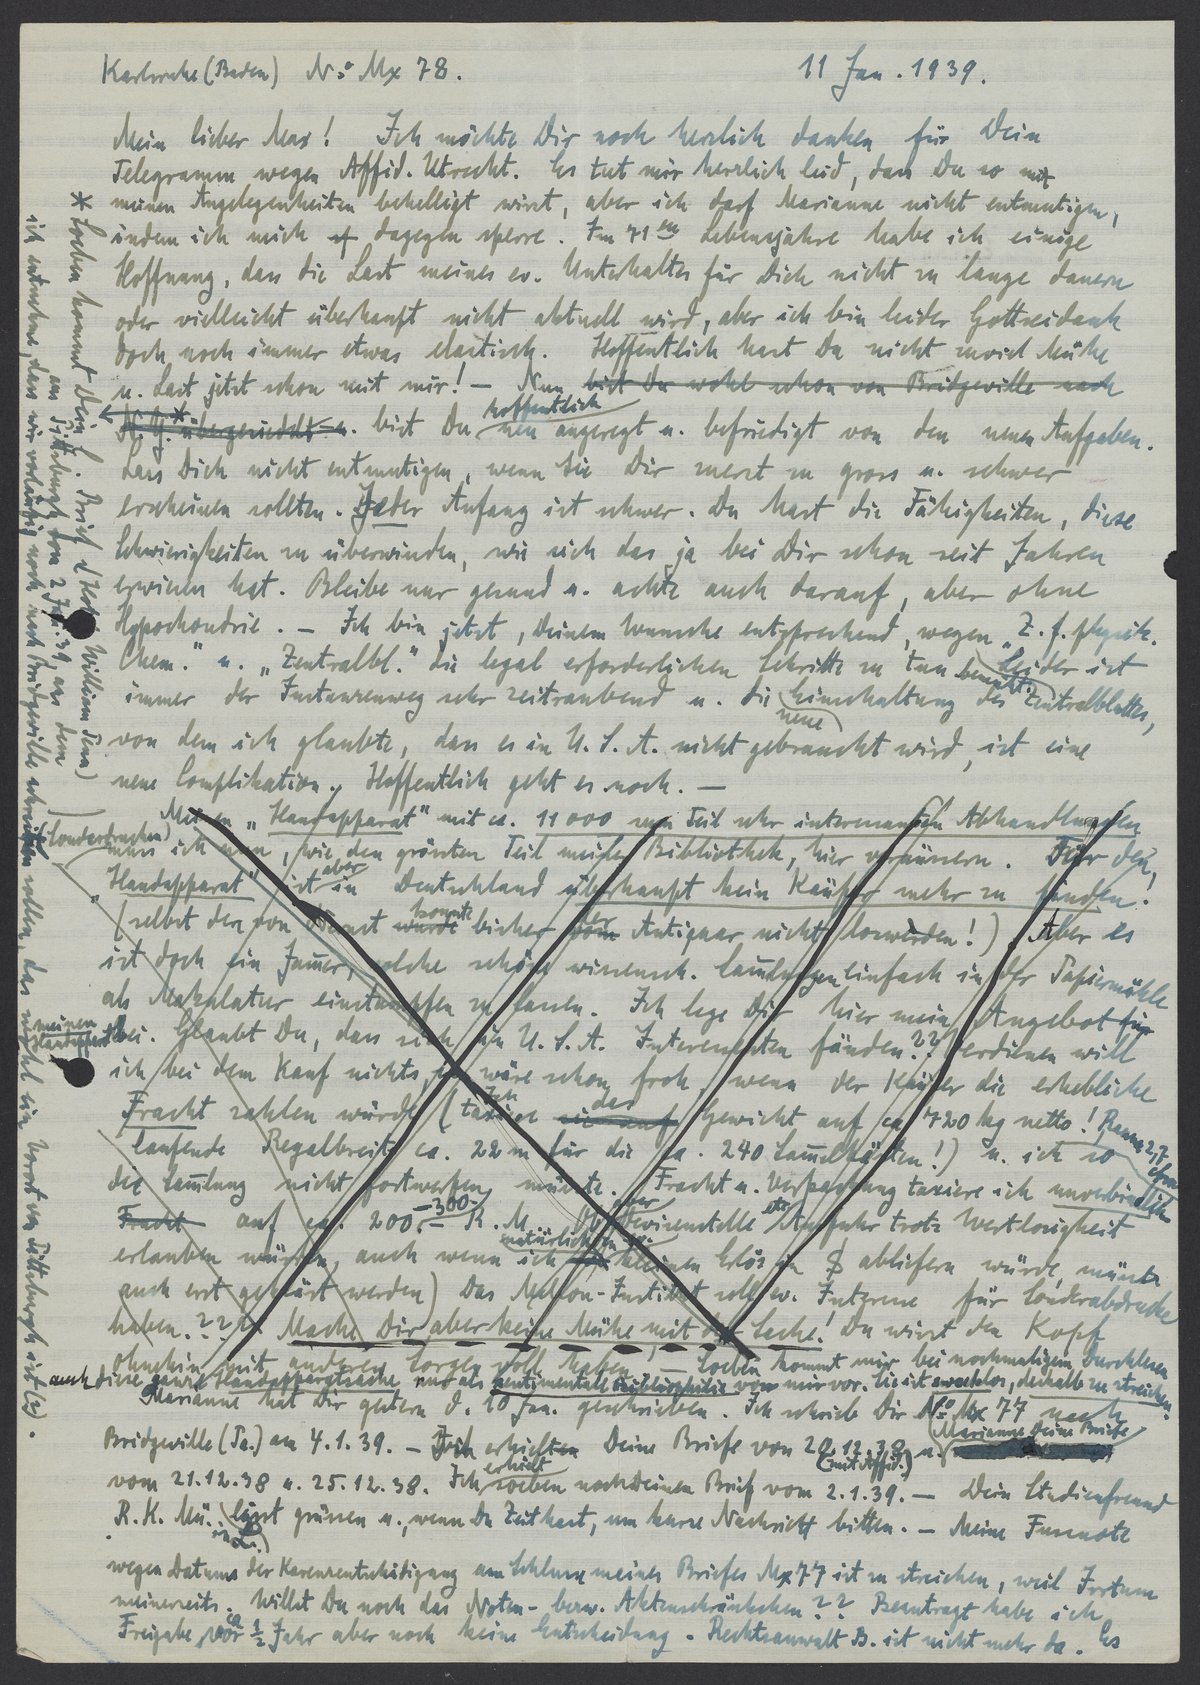 Karlsruhe (Baden) No Mx 78. 11 Jan. 1939.
Mein lieber Max! Ich möchte Dir noch herzlich danken für Dein
Telegramm wegen Affid. Utrecht. Es tut mir herzlich leid, dass Du so mit
meinen Angelegenheiten behelligt wirst, aber ich darf Marianne nicht entmutigen,
indem ich mich dagegen sperre. Im 71ten Lebensjahre habe ich einige
Hoffnung, dass die Last meines ev. Unterhaltes für Dich nicht zu lange dauern
oder vielleicht überhaupt nicht aktuell wird, aber ich bin leider Gottseidank
doch noch immer etwas elastisch. Hoffentlich hast Du nicht zuviel Mühe
u. Last jetzt schon mit mir! — Nun bist Du wohl schon von Bridgeville nach
N.Y.* übergesiedelt u. bist Du hoffentlich neu angeregt u. befriedigt von den neuen Aufgaben.
Lass Dich nicht entmutigen, wenn Sie Dir zuerst zu gross u. schwer
erscheinen sollten. Jeder Anfang ist schwer. Du hast die Fähigkeiten, diese
Schwierigkeiten zu überwinden, wie sich das ja bei Dir schon seit Jahren
erwiesen hat. Bleibe nur gesund u. achte auch darauf, aber ohne
Hypochondrie. — Ich bin jetzt, Deinem Wunsche entsprechend, wegen „Z. f. physik.
Chem." u. „Zentralbl." die legal erforderlichen Schritte zu tun bemüht. Leider ist
immer der Instanzenweg sehr zeitraubend u. die neue Einschaltung des Zentralblattes,
von dem ich glaubte, dass es in U.S.A. nicht gebraucht wird, ist eine
neue Complikation. Hoffentlich geht es noch. —
Meinen „Handapparat" mit ca. 11000 zum Teil sehr interessanten Abhandlungen
(Sonderdrucken) muss ich nun, wie den grössten Teil meiner Bibliothek, hier veräussern. Für den
„Handapparat" ist aber in Deutschland überhaupt kein Käufer mehr zu finden!
(selbst den von Nernst wurde konnte bisher vom der Antiquar nicht loswerden!) Aber es
ist doch ein Jammer, solche schöne wissensch. Sammlungen einfach in der Papiermühle
als Makulatur einstampfen zu lassen. Ich lege Dir hier mein Angebot für
meinen Handapparat bei. Glaubst Du, dass sich in U.S.A. Interessenten fänden?? Verdienen will
ich bei dem Kauf nichts, wäre schon froh, wenn der Käufer die erhebliche
Fracht zahlen würde (Ich taxiere das Gewicht auf ca 720 kg netto! Raum 2,7 cbm
laufende Regalbreite ca. 22 m für die ca. 240 Sammelkästen!) u. ich so
die Sammlung nicht fortwerfen müsste. Fracht u. Verpackung taxiere ich unverbindlich
Fracht auf ca. 200–300 R.M. (Ob der Devisenstelle etc Ausfuhr trotz Wertlosigkeit
erlauben würden, auch wenn ich natürlich keinen Erlös in $ abliefern würde, müsste
auch erst geklärt werden) Das Mellon-Institut soll ev. Interesse für Sonderabdrucke
haben.??? Mache Dir aber keine Mühe mit der Sache! Du wirst den Kopf
ohnehin mit anderen Sorgen voll haben. — Soeben kommt mir bei nochmaligem Durchlesen
auch diese ganze Handapparatsache nur als sentimentale Bibliophilie von mir vor. Sie ist zwecklos, deshalb zu streichen.
Marianne hat Dir gestern d. 10 Jan. geschrieben. Ich schrieb Dir No Mx 77 nach
Bridgeville (Pa.) am 4.1.39. — Ich erhielten Deine Briefe vom 20.12.38 (mit Affid.) u. Marianne Deine Briefe
vom 21.12.38 u. 25.12.38. Ich erhielt soeben noch Deinen Brief vom 2.1.39. — Dein Studienfreund
R. K. Mü. in L. lässt grüssen u., wenn Du Zeit hast, um kurze Nachricht bitten. — Meine Fussnote
wegen Datums der Karenzentschädigung am Schlusse meines Briefes Mx 77 ist zu streichen, weil Irrtum
meinerseits. Willst Du noch das Noten- bezw. Aktenschränkchen?? Beantragt habe ich
Freigabe vor ca ½ Jahr aber noch keine Entscheidung. Rechtsanwalt B. ist nicht mehr da. Es
* Soeben kommt Dein l. Brief (Hotel William Penn)
aus Pittsburgh vom 2 Jan. 39, aus dem
ich entnehme, dass wir vorläufig noch nach Bridgeville schreiben sollen, das wohl ein Vorort von Pittsburgh ist (?).